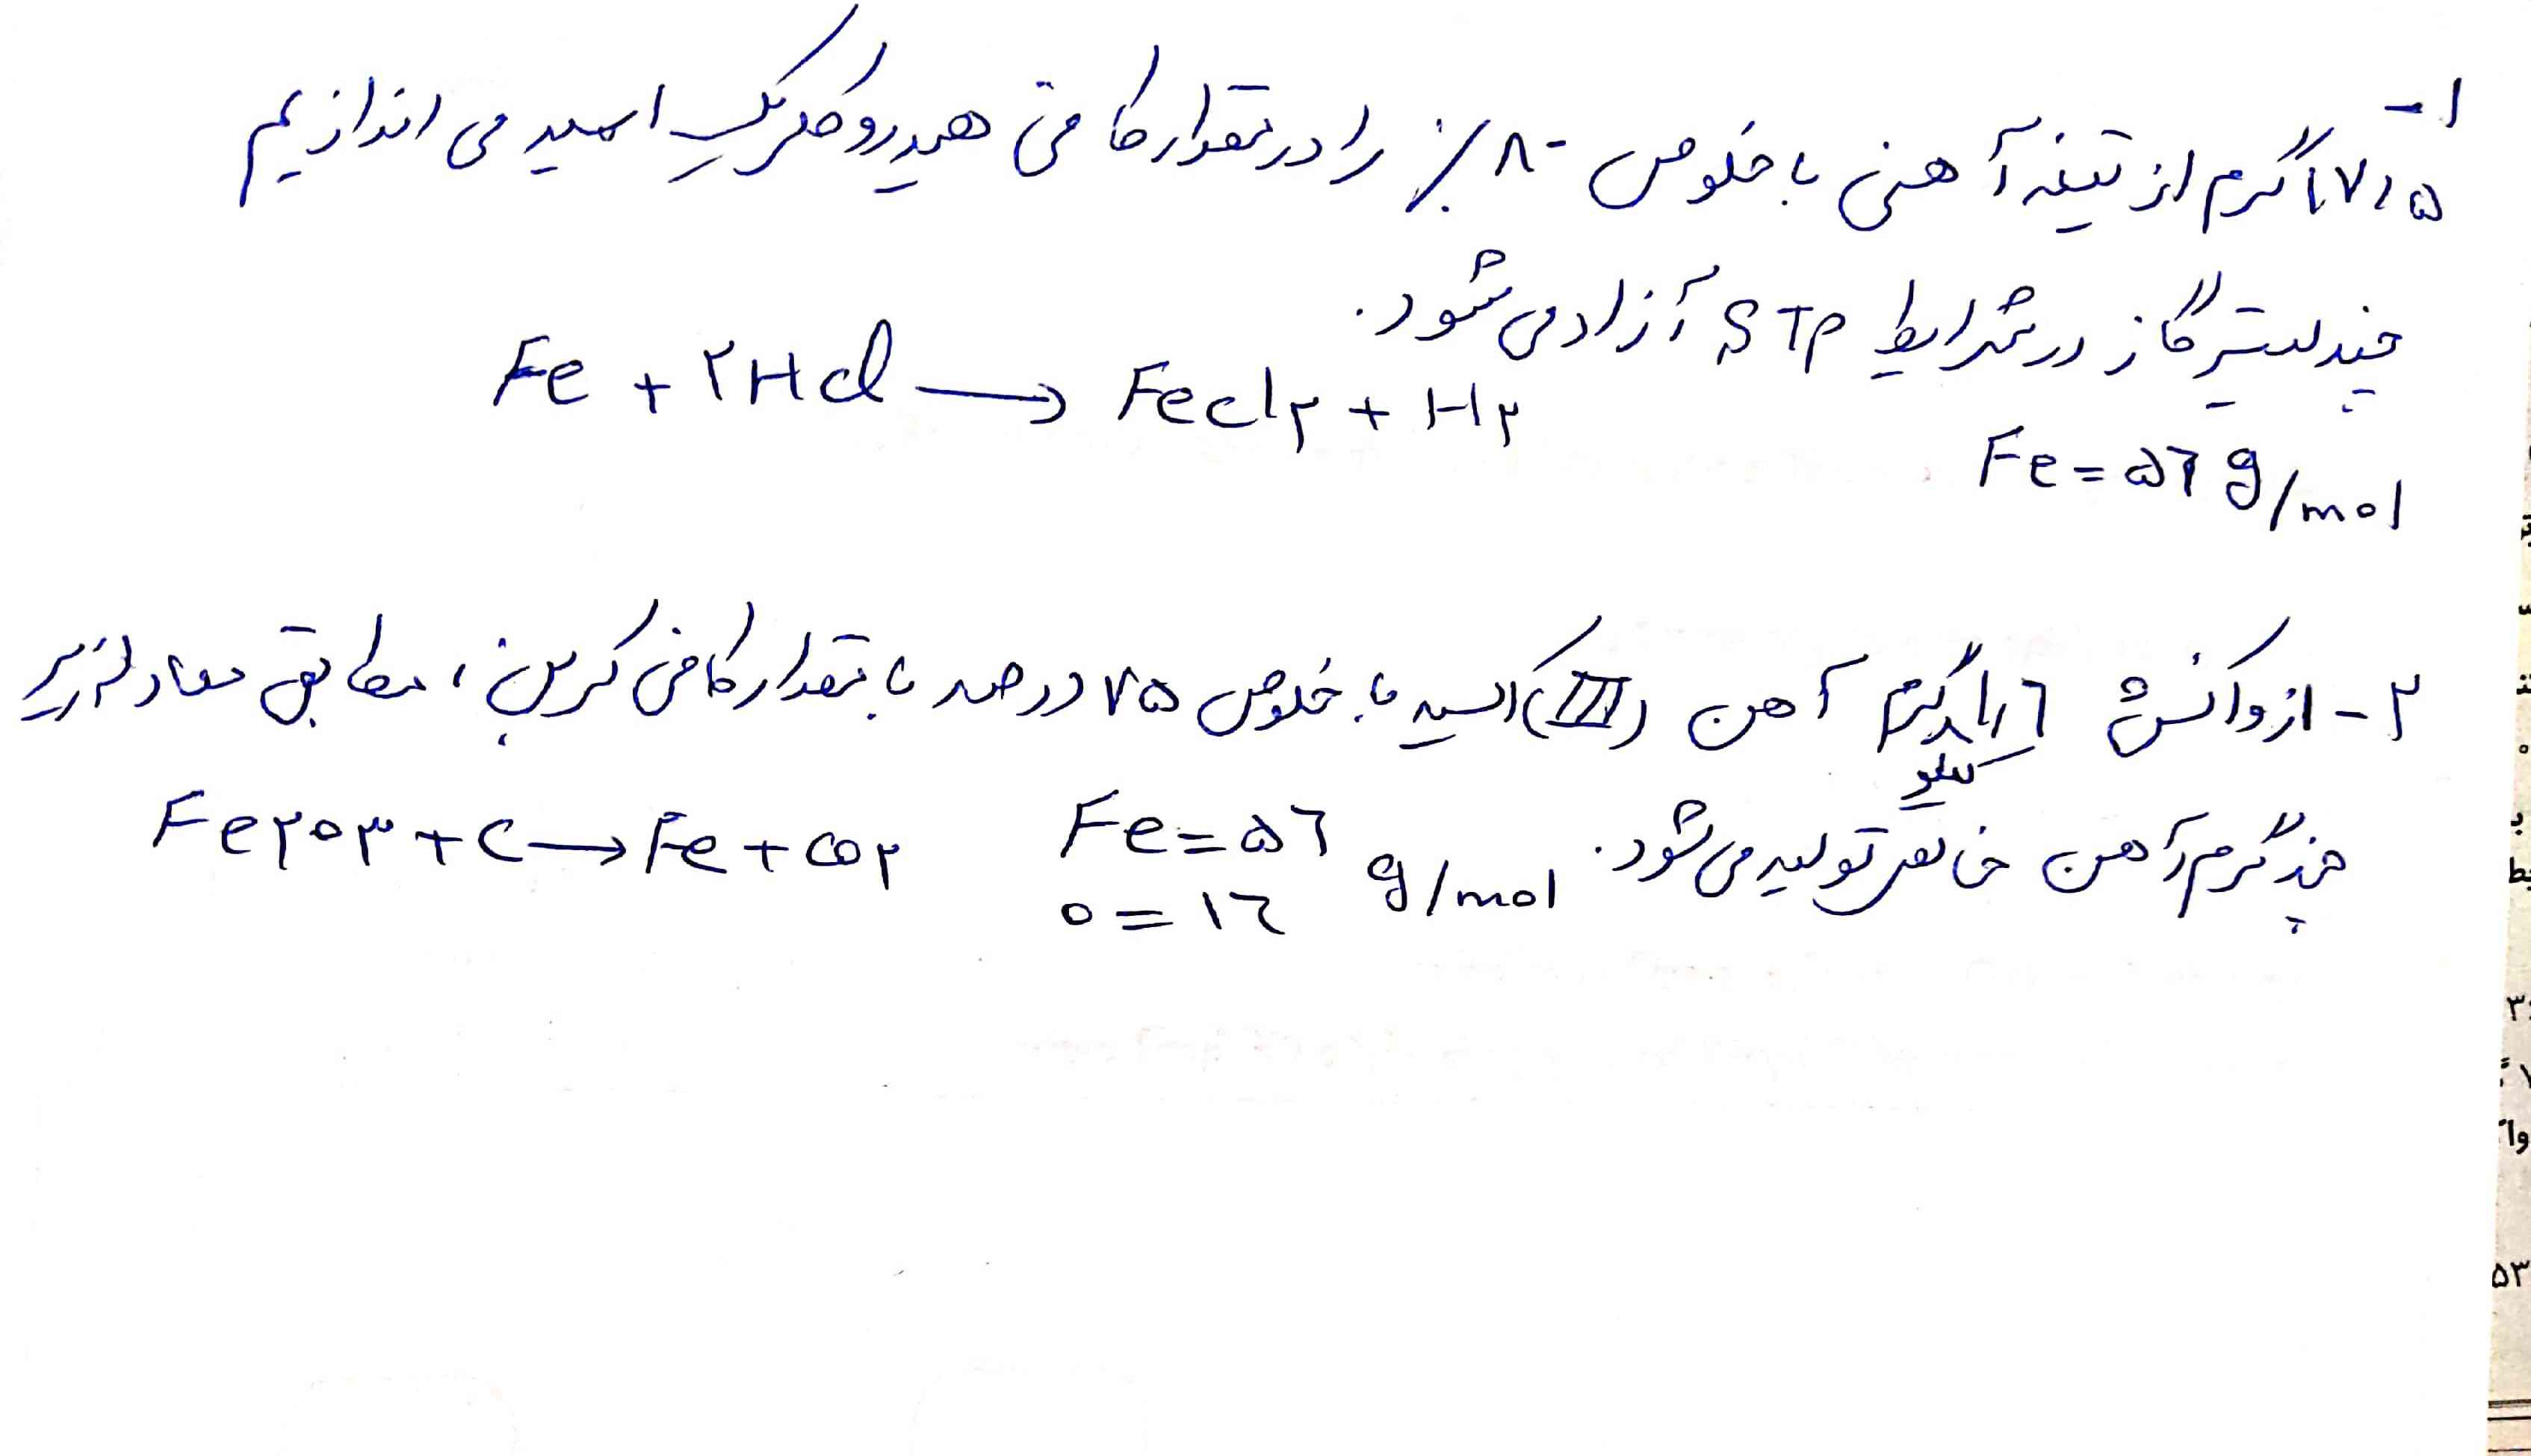 ۱-
۱۷٫۵ گرم از تیغه آهنی با خلوص ۸۰٪ را در مقدار کافی هیدروکلریک اسید می اندازیم
چند لیتر گاز در شرایط STP آزاد می شود.
Fe + ۲HCl → FeCl۲ + H۲
Fe = ۵۶ g/mol
۲- از واکنش ۱٫۶ کیلو گرم آهن (III) اکسید با خلوص ۷۵ درصد با مقدار کافی کربن، مطابق معادله زیر
چند گرم آهن خالص تولید می شود. Fe = ۵۶ g/mol Fe۲O۳ + C → Fe + CO۲
O = ۱۶
۳
وا
۵۳